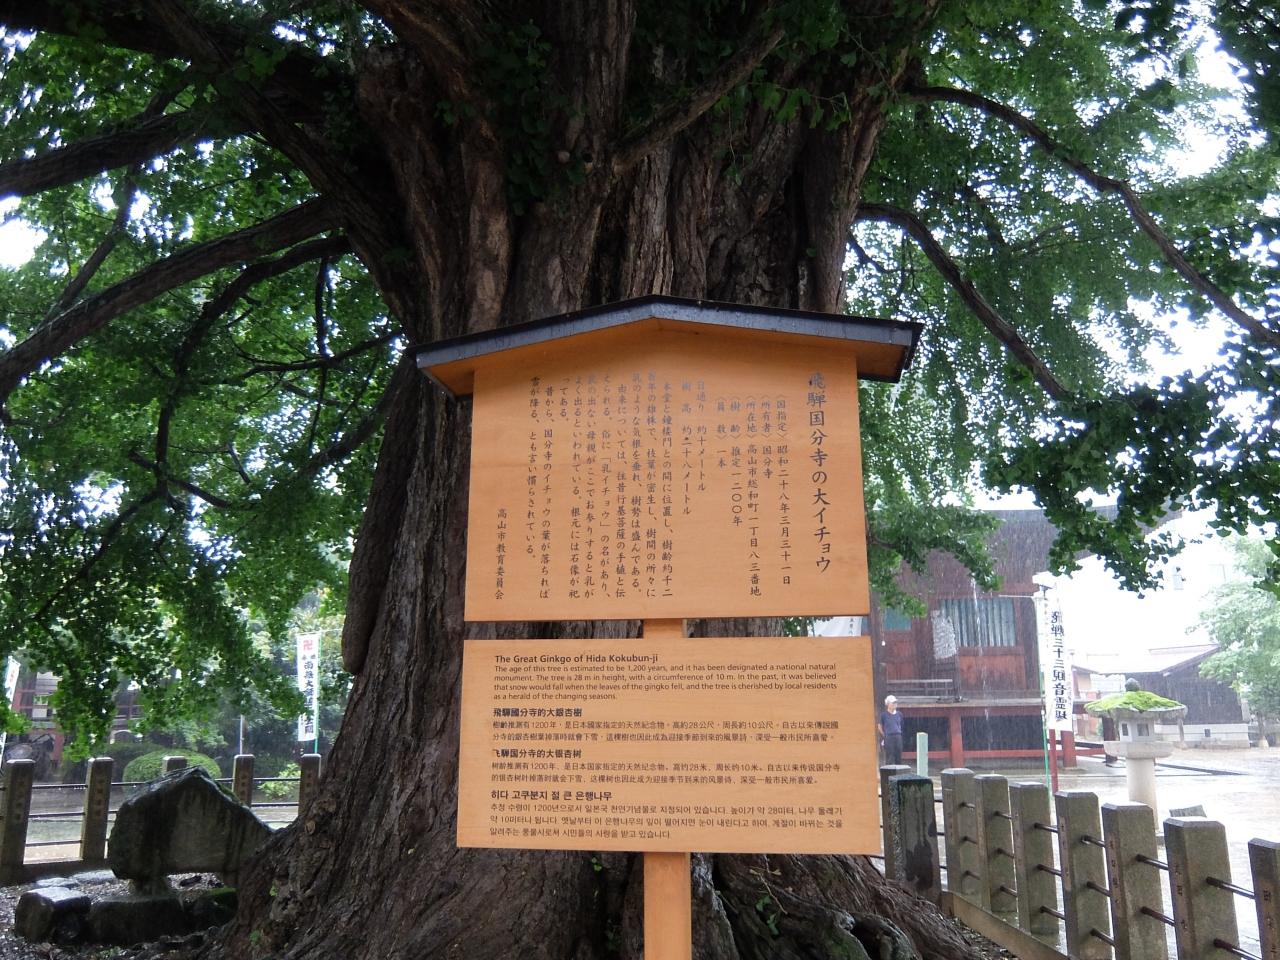 飛騨国分寺の大イチョウ
〈国指定〉昭和二十八年三月三十一日
〈所有者〉国分寺
〈所在地〉高山市総和町一丁目八三番地
〈樹 齢〉推定一二〇〇年
〈員 数〉一本
目通り 約十メートル
樹 高 約二十八メートル
本堂と鐘楼門との間に位置し、樹齢約千二
百年の雄株で、枝葉が密生し、樹間の所々に
乳のような気根を垂れ、樹勢は盛んである。
由来については、往昔行基菩薩の手植と伝
えられる。俗に「乳イチョウ」の名があり、
乳の出ない母親がここでお参りすると乳が
よく出るといわれている。根元には石像が祀
ってある。
昔から、国分寺のイチョウの葉が落ちれば
雪が降る、とも言い慣らされている。
高山市教育委員会
The Great Ginkgo of Hida Kokubun-ji
The age of this tree is estimated to be 1,200 years, and it has been designated a national natural
monument. The tree is 28 m in height, with a circumference of 10 m. In the past, it was believed
that snow would fall when the leaves of the gingko fell, and the tree is cherished by local residents
as a herald of the changing seasons.
飛驒國分寺的大銀杏樹
樹齡推測有1200年，是日本國家指定的天然紀念物。高約28公尺，周長約10公尺。自古以來傳說國
分寺的銀杏樹葉掉落時就會下雪，這棵樹也因此成為迎接季節到來的風景詩，深受一般市民所喜愛。
飞驒国分寺的大银杏树
树龄推测有1200年、是日本国家指定的天然纪念物。高约28米、周长约10米。自古以来传说国分寺
的银杏树叶掉落时就会下雪、这棵树也因此成为迎接季节到来的风景诗、深受一般市民所喜爱。
히다 고쿠분지 절 큰 은행나무
추정 수령이 1200년으로서 일본국 천연기념물로 지정되어 있습니다. 높이가 약 28미터, 나무 둘레가
약 10미터나 됩니다. 옛날부터 이 은행나무의 잎이 떨어지면 눈이 내린다고 하며, 계절이 바뀌는 것을
알려주는 풍물시로서 시민들의 사랑을 받고 있습니다.
飛騨三十三観音霊場